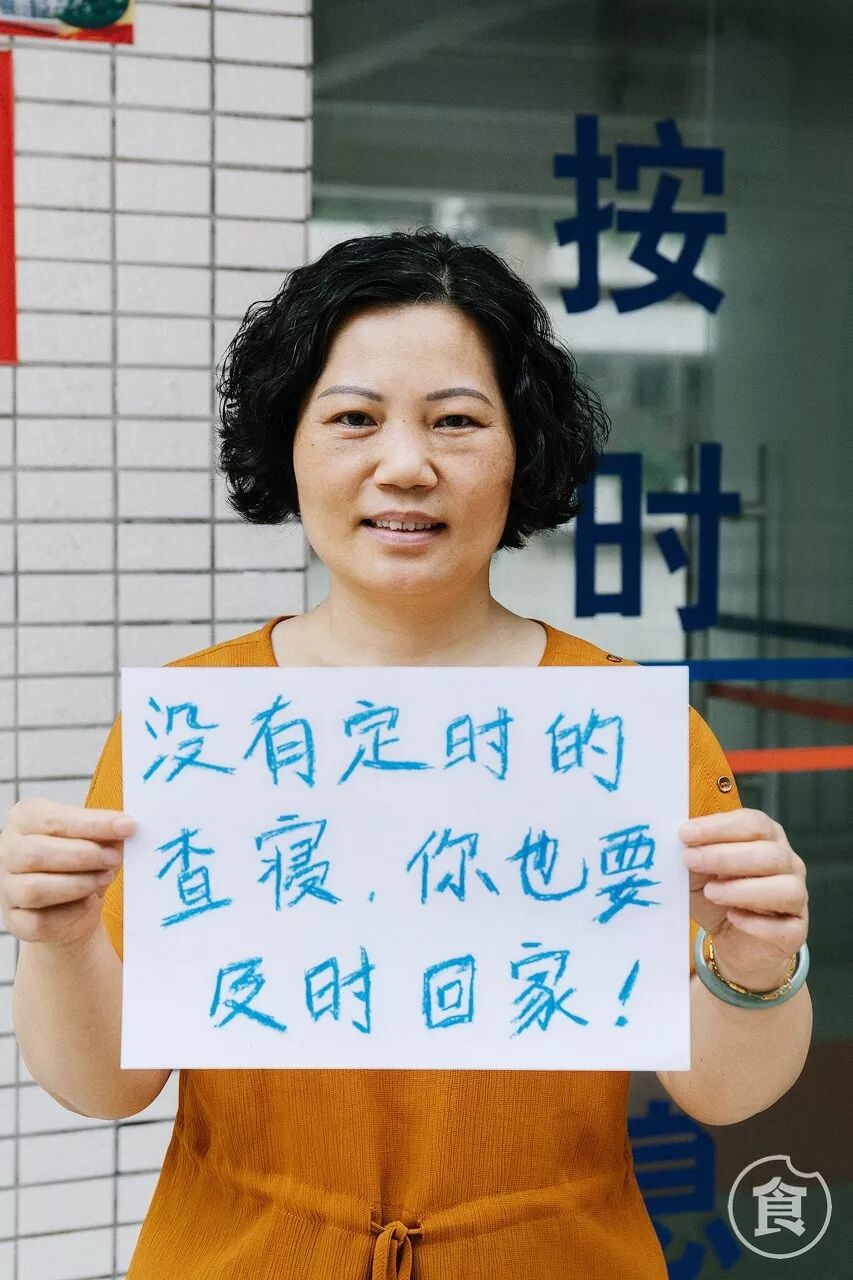 按
时
没有定时的
查寝,你也要
及时回家!
息
食